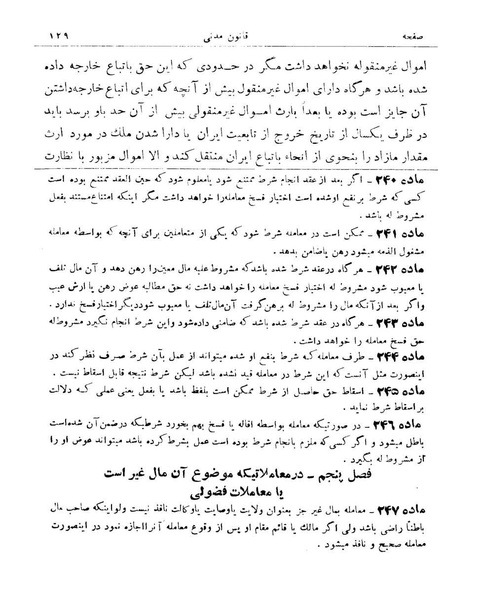 صفحه قانون مدنی ۱۲۹
اموال غیرمنقوله نخواهد داشت مگر در حدودی که این حق باتباع خارجه داده
شده باشد و هرگاه دارای اموال غیرمنقول بیش از آنچه که برای اتباع خارجه‌داشتن
آن جایز است بوده یا بعداً بارث اموال غیرمنقولی بیش از آن حد باو برسد باید
در ظرف یکسال از تاریخ خروج از تابعیت ایران یا دارا شدن ملک در مورد ارث
مقدار مازاد را بنحوی از انحاء باتباع ایران منتقل کند و الا اموال مزبور با نظارت
ماده ۲۴۰ – اگر بعد از عقد انجام شرط ممتنع شود یا معلوم شود که حین العقد ممتنع بوده است
کسی که شرط بر نفع او شده است اختیار فسخ معامله را خواهد داشت مگر اینکه امتناع مستند بفعل
مشروط له باشد .
ماده ۲۴۱ – ممکن است در معامله شرط شود که یکی از متعاملین برای آنچه که بواسطه معامله
مشغول الذمه میشود رهن یا ضامن بدهد .
ماده ۲۴۲ – هرگاه در عقد شرط شده باشد که مشروط علیه مال معین را رهن دهد و آن مال تلف
یا معیوب شود مشروط له اختیار فسخ معامله را خواهد داشت نه حق مطالبه عوض رهن یا ارش عیب
و اگر بعد از آنکه مال را مشروط له برهن گرفت آن مال تلف یا معیوب شود دیگر اختیار فسخ ندارد .
ماده ۲۴۳ – هرگاه در عقد شرط شده باشد که ضامنی داده شود و این شرط انجام نگیرد مشروط له
حق فسخ معامله را خواهد داشت .
ماده ۲۴۴ – طرف معامله که شرط بنفع او شده میتواند از عمل بآن شرط صرف نظر کند در
اینصورت مثل آنست که این شرط در معامله قید نشده باشد لیکن شرط نتیجه قابل اسقاط نیست .
ماده ۲۴۵ – اسقاط حق حاصل از شرط ممکن است بلفظ باشد یا بفعل یعنی عملی که دلالت
بر اسقاط شرط نماید .
ماده ۲۴۶ – در صورتیکه معامله بواسطه اقاله یا فسخ بهم بخورد شرطیکه در ضمن آن شده است
باطل میشود و اگر کسی که ملزم بانجام شرط بوده است عمل بشرط کرده باشد میتواند عوض او را
از مشروط له بگیرد .
فصل پنجم – در معاملاتیکه موضوع آن مال غیر است
یا معاملات فضولی
ماده ۲۴۷ – معامله بمال غیر جز بعنوان ولایت یا وصایت یا وکالت نافذ نیست ولو اینکه صاحب مال
باطناً راضی باشد ولی اگر مالک یا قائم مقام او پس از وقوع معامله آنرا اجازه نمود در اینصورت
معامله صحیح و نافذ میشود .